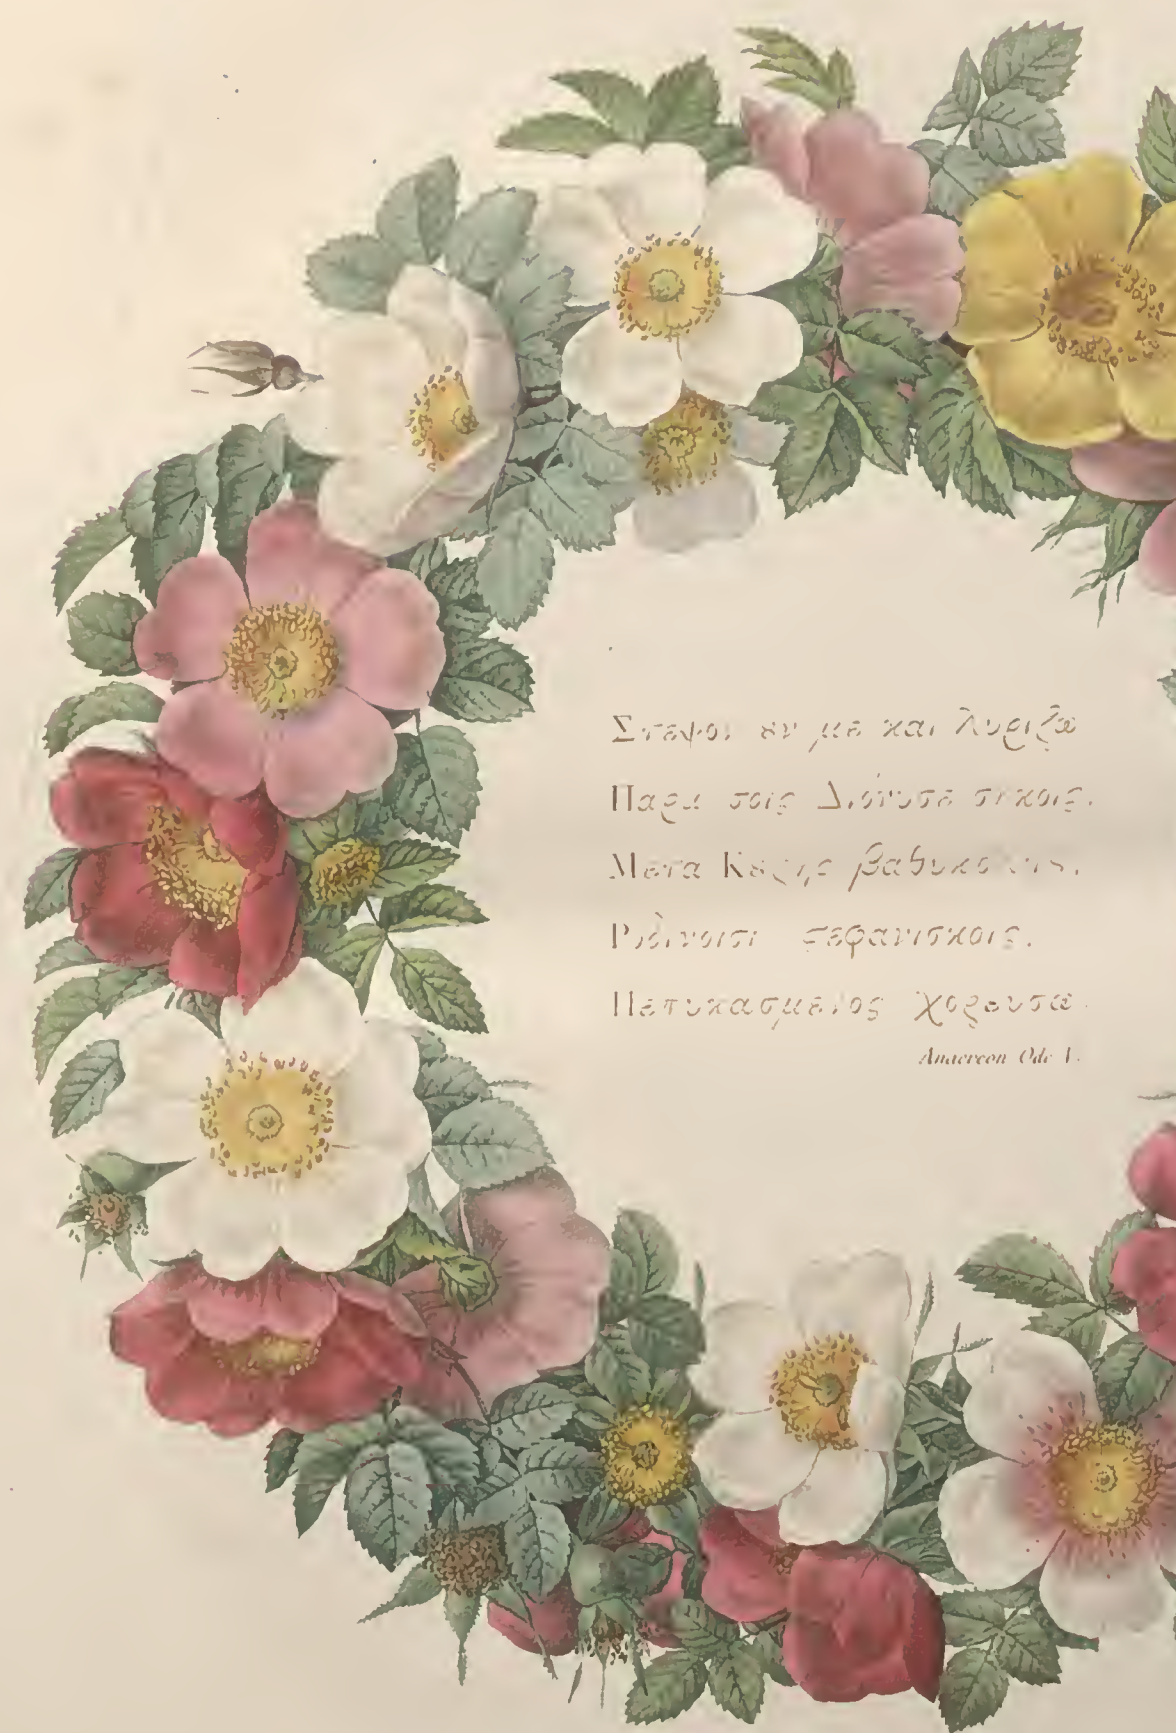 Στεψον ȣν με και λυριζω
Παρα τοις Διόνυσȣ σηκοις.
Μετα Κȣρης βαθυκολπȣ,
Ροδινοισι ϛεφανισκοις.
Πεπυκασμενος χορευσω.
Anacreon Ode V.